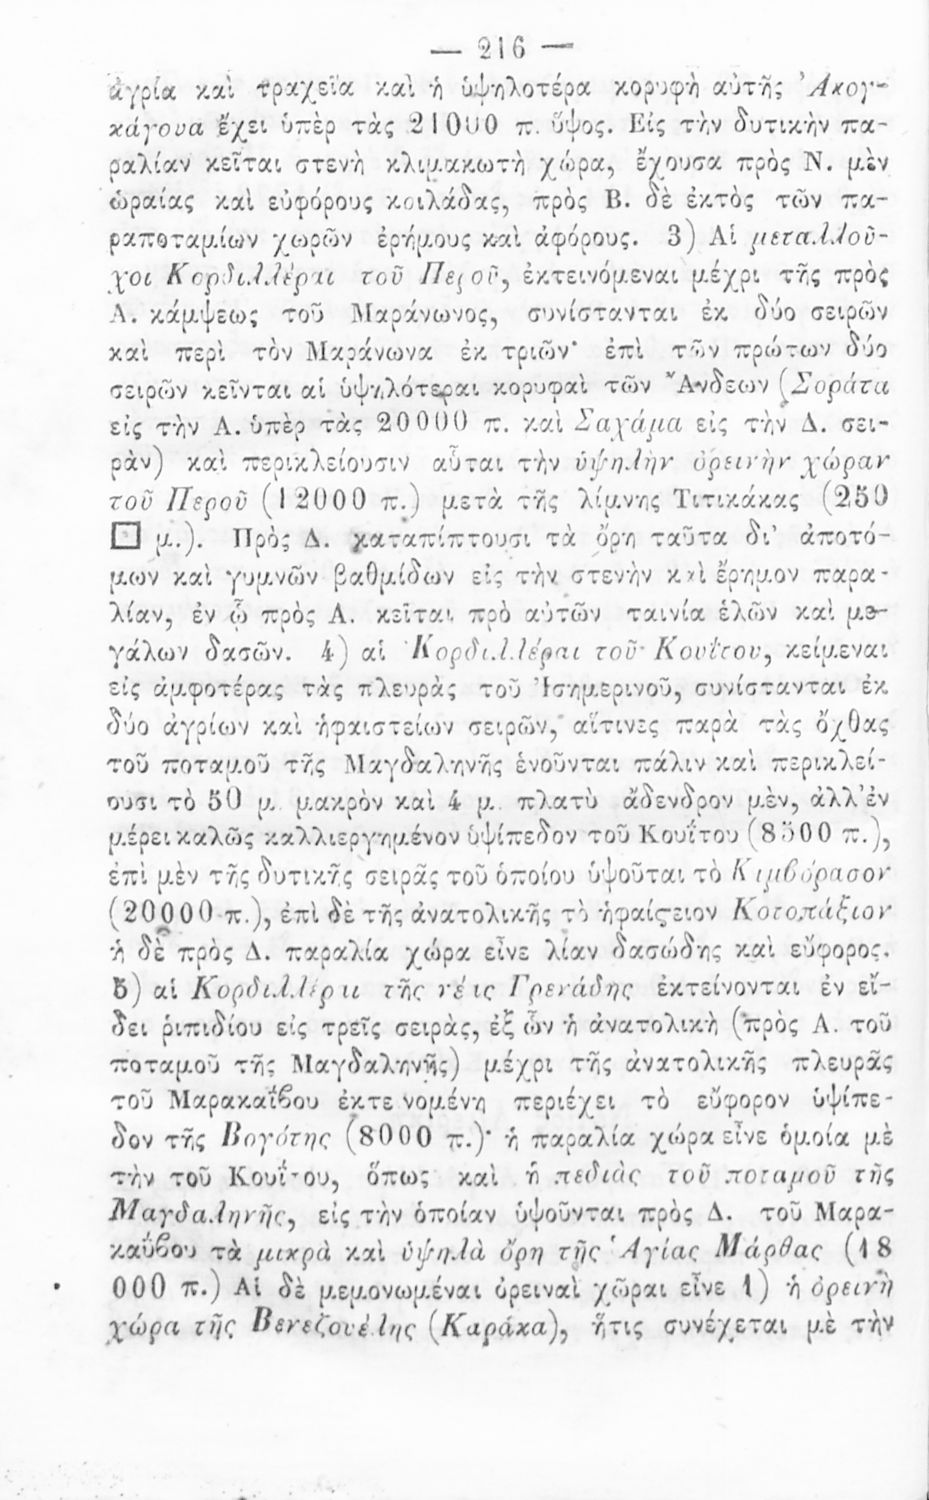 — 216 —
ἀγρία καὶ τραχεῖα καὶ ἡ ὑψηλοτέρα κορυφὴ αὐτῆς Ἀκογ-
κάγουα ἔχει ὑπὲρ τὰς 21000 π. ὕψος. Εἰς τὴν δυτικὴν πα-
ραλίαν κεῖται στενὴ κλιμακωτὴ χώρα, ἔχουσα πρὸς Ν. μὲν
ὡραίας καὶ εὐφόρους κοιλάδας, πρὸς Β. δὲ ἐκτὸς τῶν πα-
ραποταμίων χωρῶν ἐρήμους καὶ ἀφόρους. 3) Αἱ μεταλλοῦ-
χοι Κορδιλλέραι τοῦ Περοῦ, ἐκτεινόμεναι μέχρι τῆς πρὸς
Α. κάμψεως τοῦ Μαράνωνος, συνίστανται ἐκ δύο σειρῶν
καὶ περὶ τὸν Μαράνωνα ἐκ τριῶν· ἐπὶ τῶν πρώτων δύο
σειρῶν κεῖνται αἱ ὑψηλότεραι κορυφαὶ τῶν Ἄνδεων (Σοράτα
εἰς τὴν Α. ὑπὲρ τὰς 20000 π. καὶ Σαχάμα εἰς τὴν Δ. σει-
ρὰν) καὶ περικλείουσιν αὗται τὴν ὑψηλὴν ὀρεινὴν χώραν
τοῦ Περοῦ (12000 π.) μετὰ τῆς λίμνης Τιτικάκας (250
□ μ.). Πρὸς Δ. καταπίπτουσι τὰ ὄρη ταῦτα δι' ἀποτό-
μων καὶ γυμνῶν βαθμίδων εἰς τὴν στενὴν καὶ ἔρημον παρα-
λίαν, ἐν ᾧ πρὸς Α. κεῖται πρὸ αὐτῶν ταινία ἑλῶν καὶ με-
γάλων δασῶν. 4) αἱ Κορδιλλέραι τοῦ Κουΐτου, κείμεναι
εἰς ἀμφοτέρας τὰς πλευρὰς τοῦ Ἰσημερινοῦ, συνίστανται ἐκ
δύο ἀγρίων καὶ ἡφαιστείων σειρῶν, αἵτινες παρὰ τὰς ὄχθας
τοῦ ποταμοῦ τῆς Μαγδαληνῆς ἑνοῦνται πάλιν καὶ περικλεί-
ουσι τὸ 50 μ. μακρὸν καὶ 4 μ. πλατὺ ἄδενδρον μὲν, ἀλλ' ἐν
μέρει καλῶς καλλιεργημένον ὑψίπεδον τοῦ Κουΐτου (8500 π.),
ἐπὶ μὲν τῆς δυτικῆς σειρᾶς τοῦ ὁποίου ὑψοῦται τὸ Κιμβόρασον
(20000 π.), ἐπὶ δὲ τῆς ἀνατολικῆς τὸ ἡφαίςειον Κοτοπάξιον
ἡ δὲ πρὸς Δ. παραλία χώρα εἶνε λίαν δασώδης καὶ εὔφορος.
5) αἱ Κορδιλλέραι τῆς νέας Γρενάδης ἐκτείνονται ἐν εἴ-
δει ῥιπιδίου εἰς τρεῖς σειρὰς, ἐξ ὧν ἡ ἀνατολικὴ (πρὸς Α. τοῦ
ποταμοῦ τῆς Μαγδαληνῆς) μέχρι τῆς ἀνατολικῆς πλευρᾶς
τοῦ Μαρακαΐβου ἐκτεινομένη περιέχει τὸ εὔφορον ὑψίπε-
δον τῆς Βογότης (8000 π.)· ἡ παραλία χώρα εἶνε ὁμοία μὲ
τὴν τοῦ Κουΐτου, ὅπως καὶ ἡ πεδιὰς τοῦ ποταμοῦ τῆς
Μαγδαληνῆς, εἰς τὴν ὁποίαν ὑψοῦνται πρὸς Δ. τοῦ Μαρα-
καΰβου τὰ μικρὰ καὶ ὑψηλὰ ὄρη τῆς Ἁγίας Μάρθας (18
000 π.) Αἱ δὲ μεμονωμέναι ὀρειναὶ χῶραι εἶνε 1) ἡ ὀρεινὴ
χώρα τῆς Βενεζουέλης (Καράκα), ἥτις συνέχεται μὲ τὴν